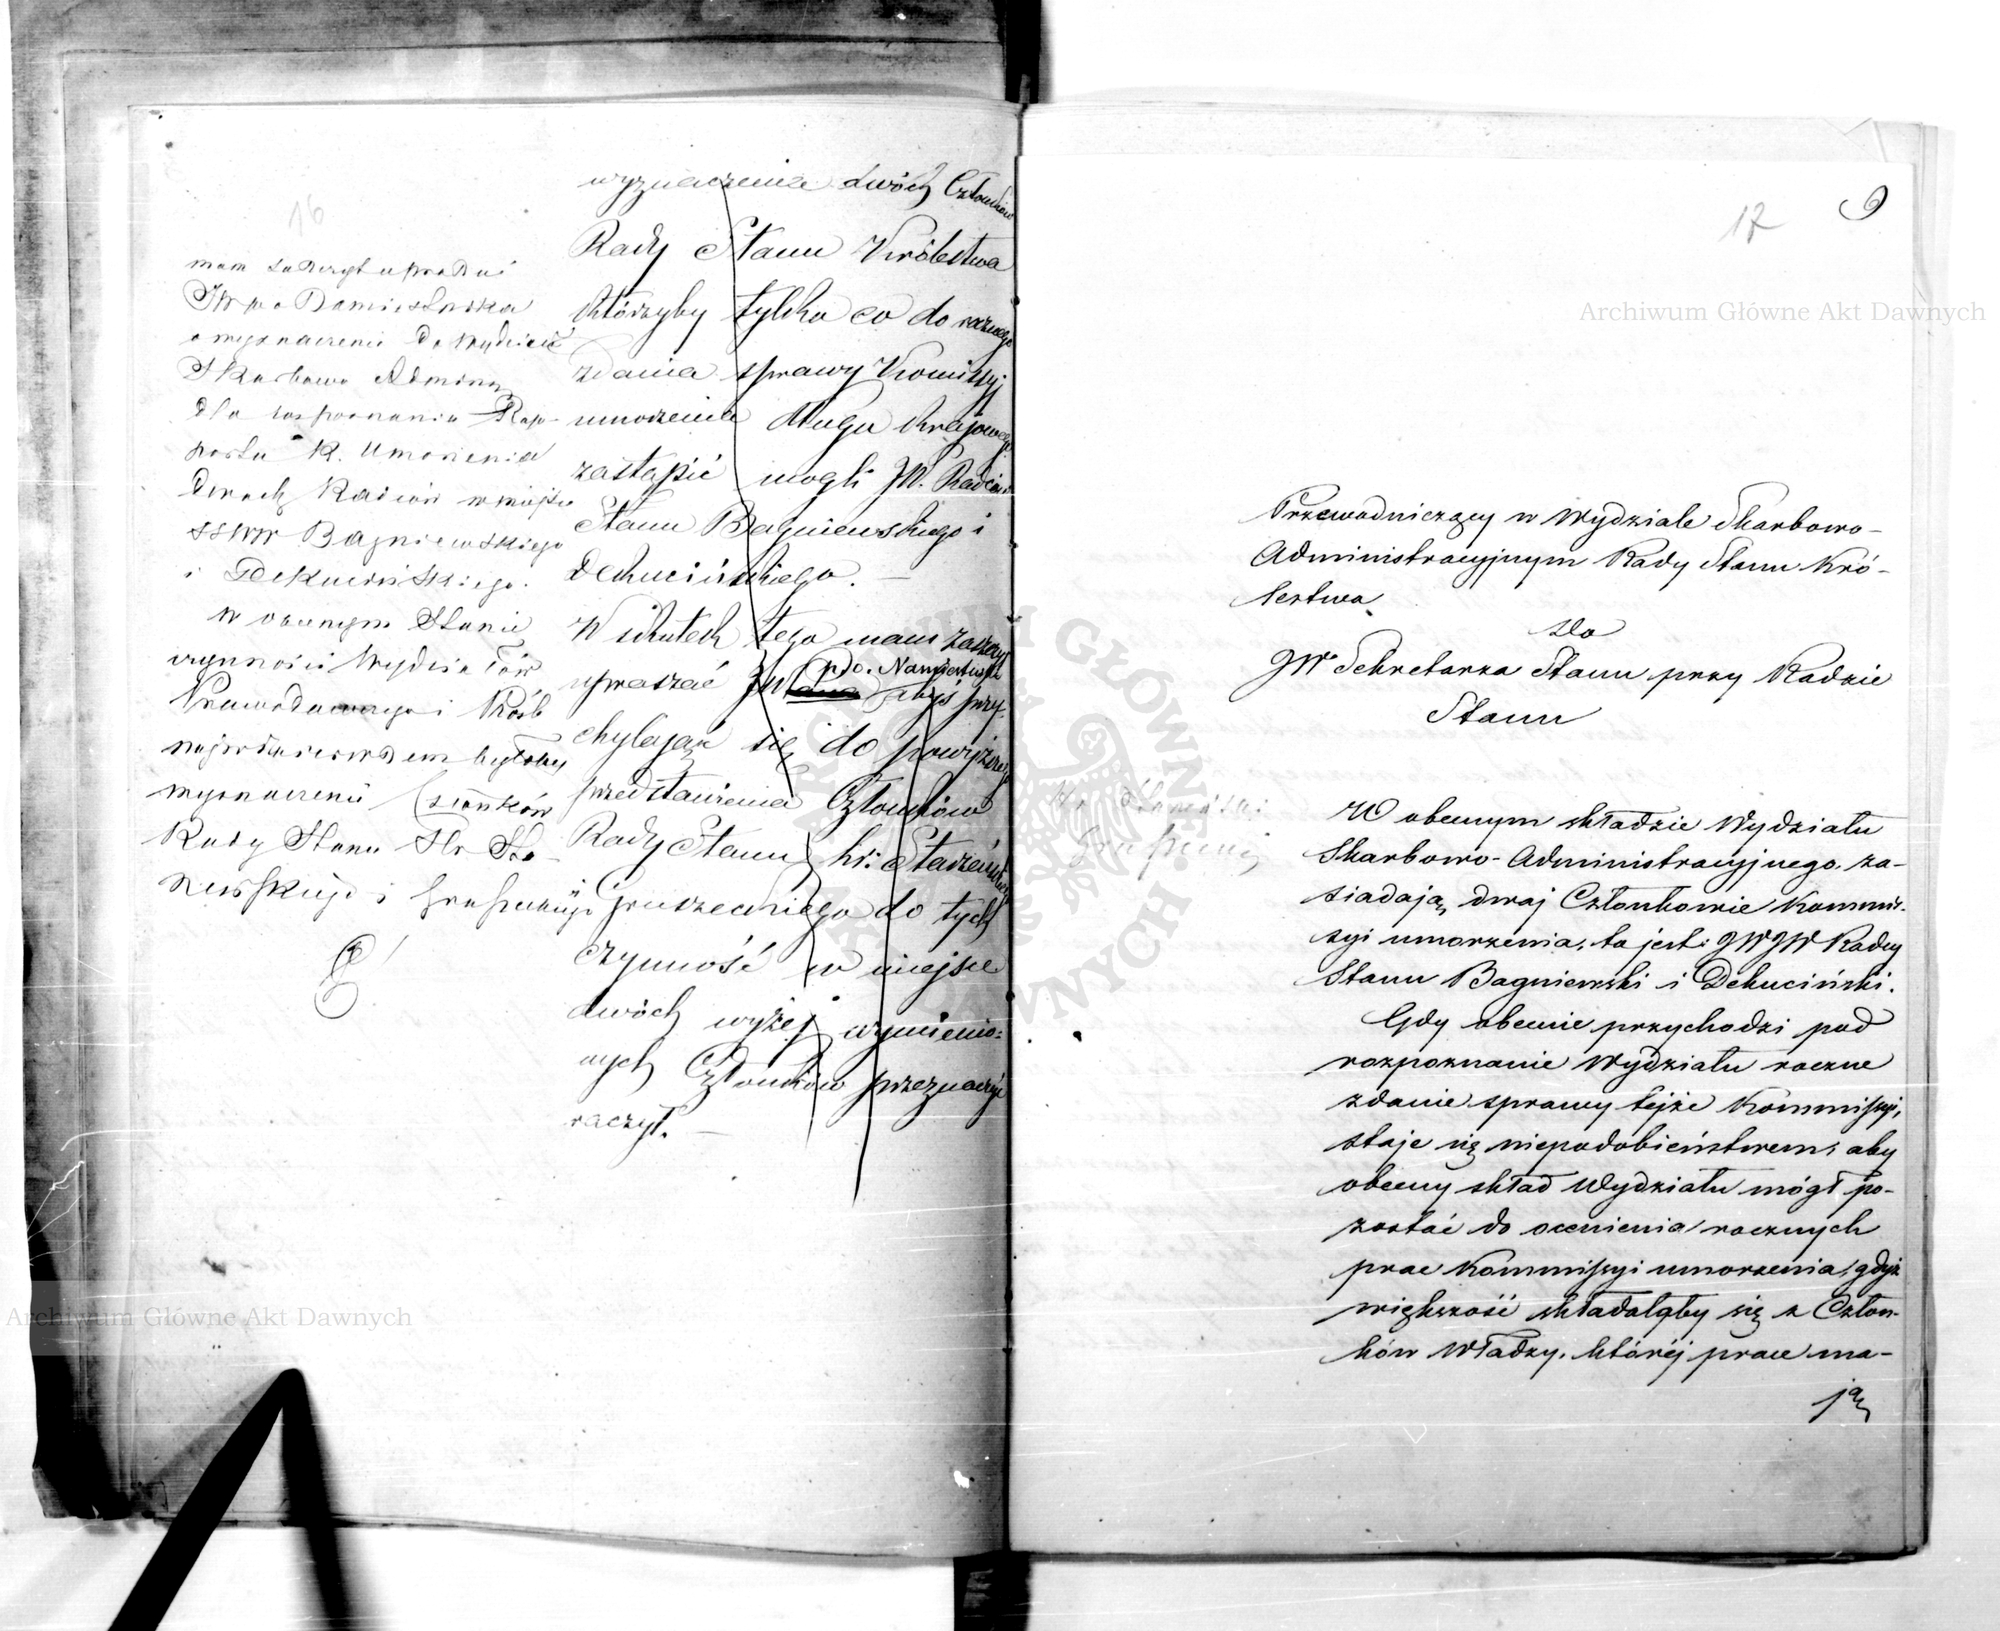 16
mam zaszczyt upraszać
JW Pana Namiestnika
o wyznaczenie do Wydziału
Skarbowo Admin.
dla rozpoznania Rap-
portu K. Umorzenia
dwóch Radców w miejsce
JJWW Bagniewskiego
i Dekucińskiego.
W obecnym Stanie
czynności Wydziałów
Prawodawczego i Próśb
byłoby
wyznaczenie Członków
Rady Stanu Hr.
i
wyznaczenia dwóch Członków
Rady Stanu Królestwa
którzyby tylko co do rocznego
zdania sprawy Komissyj
umorzenia długu krajowego
zastąpić mogli JW. Radców
Stanu Bagniewskiego i
Dekucińskiego. —
W skutek tego mam zaszczyt
upraszać JW Pana p.o. Namiestnika abyś przy-
chylając się do powyższego
przedstawienia Członków
Rady Stanu hr:
i Gruszeckiego do tych
czynność w miejsce
dwóch wyżej wymienio-
nych Członków przeznaczyć
raczył. —
17 9
Archiwum Główne Akt Dawnych
Przewodniczący w Wydziale Skarbowo-
Administracyjnym Rady Stanu Kró-
lestwa
do
JW Sekretarza Stanu przy Radzie
Stanu
W obecnym składzie Wydziału
Skarbowo-Administracyjnego za-
siadają dwaj Członkowie Kommis-
syi umorzenia, to jest: JWJW Radcy
Stanu Bagniewski i Dekuciński.
Gdy obecnie przychodzi pod
rozpoznanie Wydziału roczne
zdanie sprawy tejże Kommissyi,
staje się niepodobieństwem, aby
obecny skład Wydziału mógł po-
zostać do ocenienia rocznych
prac Kommissyi umorzenia, gdyż
większość składałaby się z Człon-
ków Władzy, której prace ma-
ją
Archiwum Główne Akt Dawnych